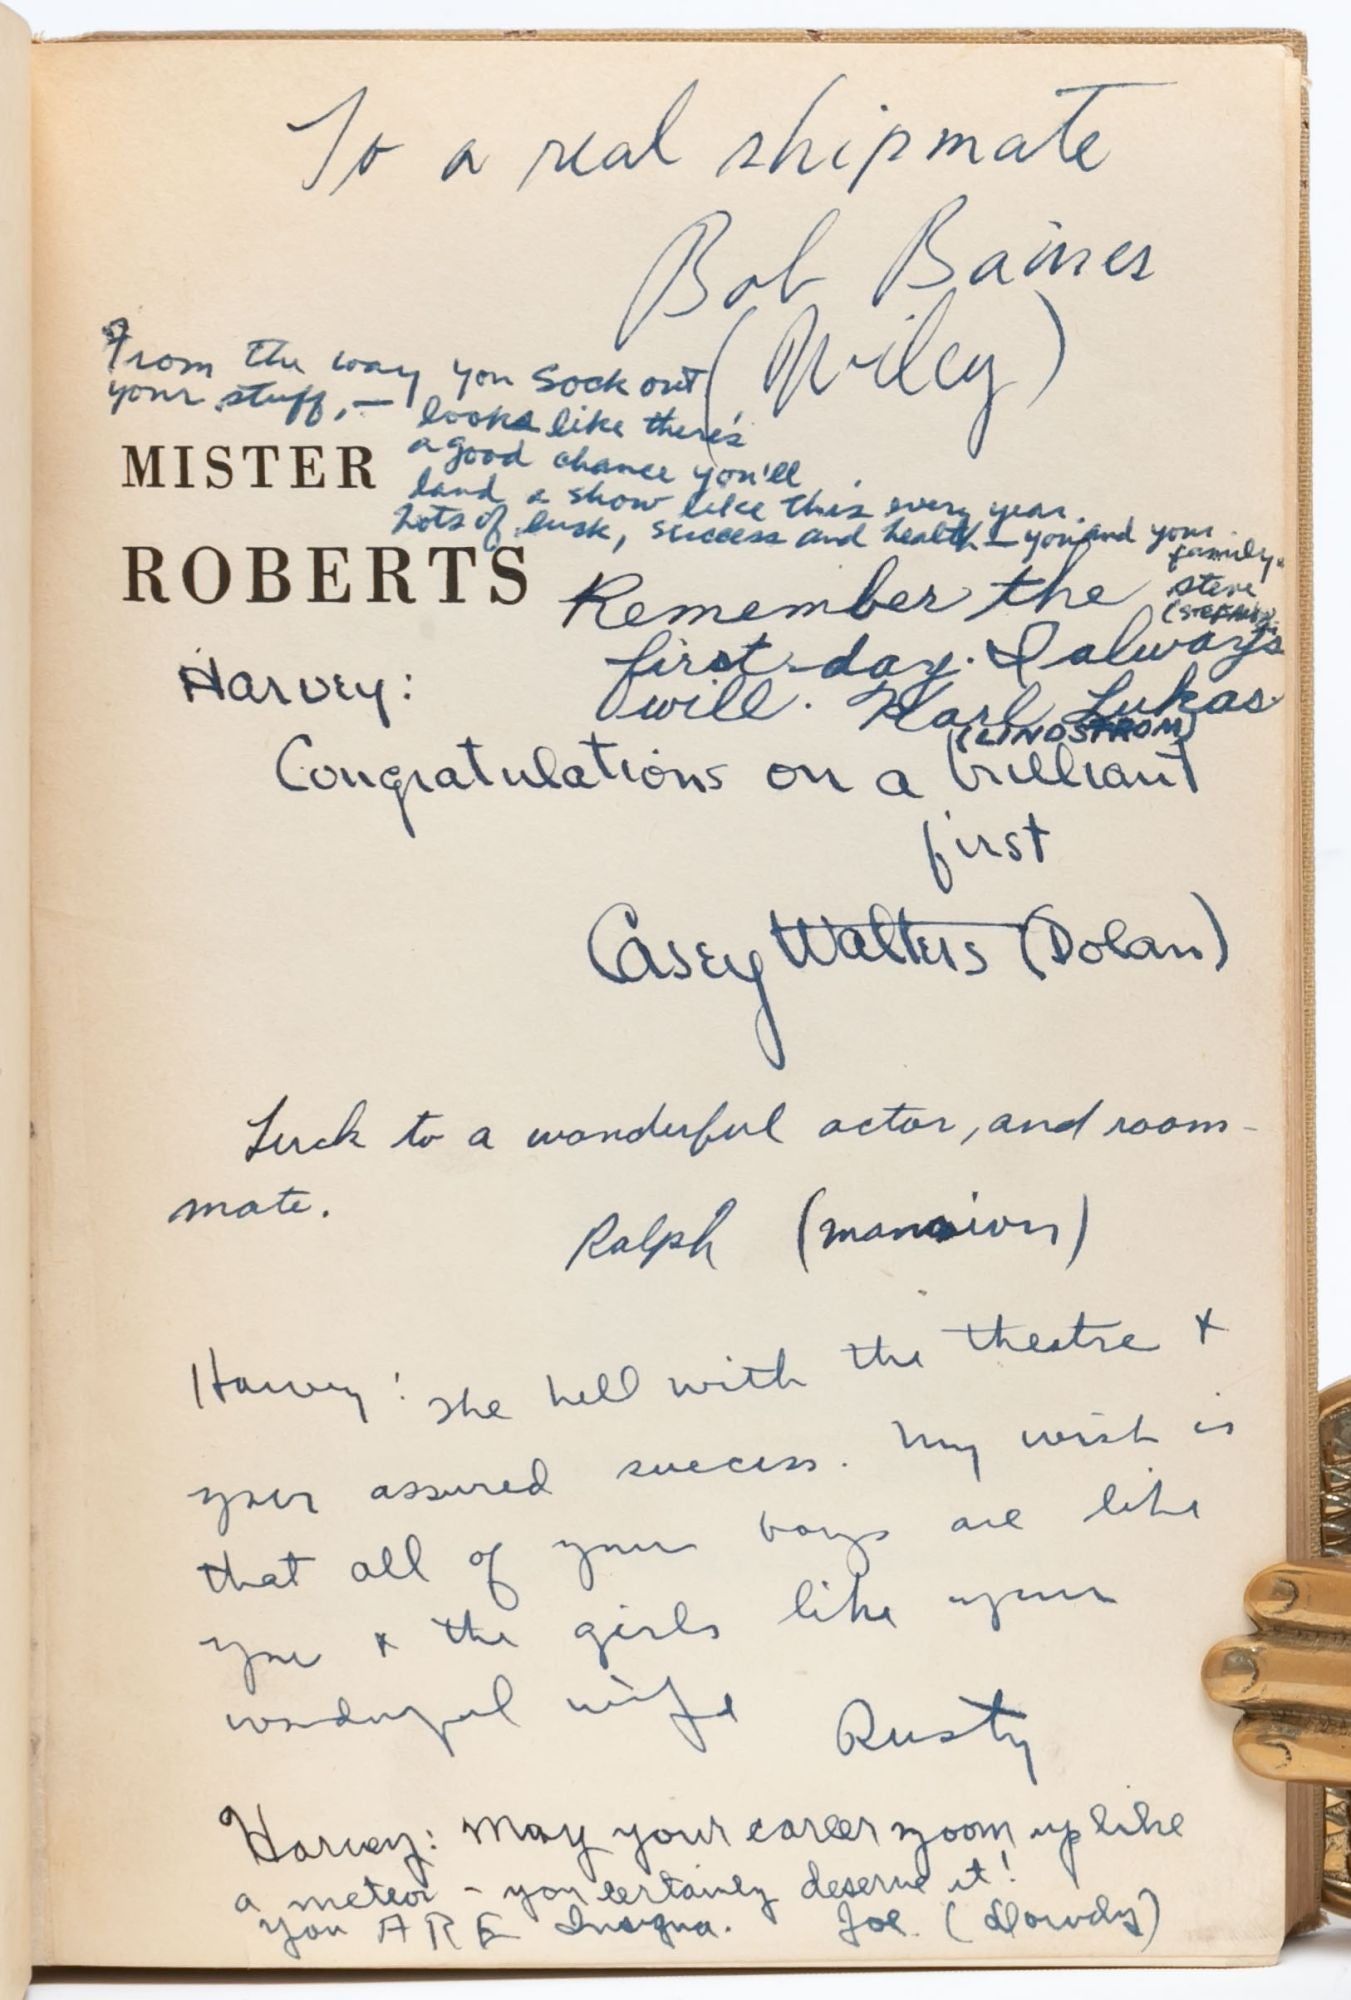 To a real shipmate
Bob Baines
(Wiley)
From the way you sock out
your stuff, — looks like there's
a good chance you'll
land a show like this every year.
Lots of luck, success and health — you and your
family.
Steve
(Stefanowski)
MISTER
ROBERTS
Remember the
first day. I always
will. Karl Lukas
(LINDSTROM)
Harvey:
Congratulations on a brilliant
first
Casey Walters (Dolan)
Luck to a wonderful actor, and room-
mate.
Ralph (mannion)
Harvey: The hell with the theatre &
your assured success. My wish is
that all of your boys are like
you & the girls like your
wonderful wife
Rusty
Harvey: May your career zoom up like
a meteor - you certainly deserve it!
You ARE Insigna. Joe. (Dowdy)